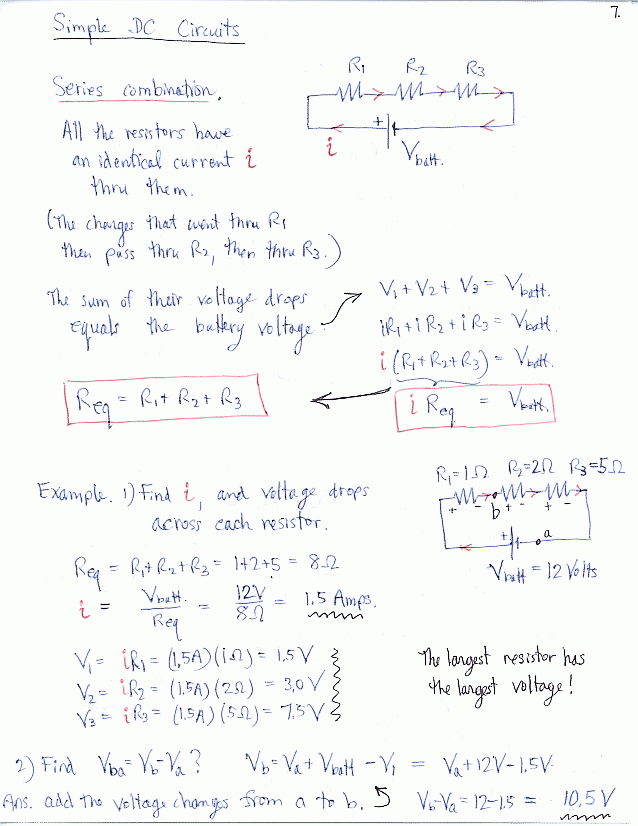 7.
Simple DC Circuits
Series combination.
R1 R2 R3
+
i Vbatt.
All the resistors have
an identical current i
thru them.
(The charges that went thru R1
then pass thru R2, then thru R3.)
The sum of their voltage drops
equals the battery voltage:
V1 + V2 + V3 = Vbatt.
iR1 + iR2 + iR3 = Vbatt.
i (R1+R2+R3) = Vbatt.
Req = R1 + R2 + R3
i Req = Vbatt.
R1=1Ω R2=2Ω R3=5Ω
+ - b + - + -
+ a
Vbatt = 12 Volts
Example. 1) Find i, and voltage drops
across each resistor.
Req = R1+R2+R3 = 1+2+5 = 8Ω
i = Vbatt. / Req = 12V / 8Ω = 1.5 Amps.
V1 = iR1 = (1.5A)(1Ω) = 1.5V
V2 = iR2 = (1.5A)(2Ω) = 3.0V
V3 = iR3 = (1.5A)(5Ω) = 7.5V
The largest resistor has
the largest voltage!
2) Find Vba = Vb-Va? Vb = Va + Vbatt - V1 = Va+12V-1.5V.
Ans. add the voltage changes from a to b. Vb-Va = 12-1.5 = 10.5V